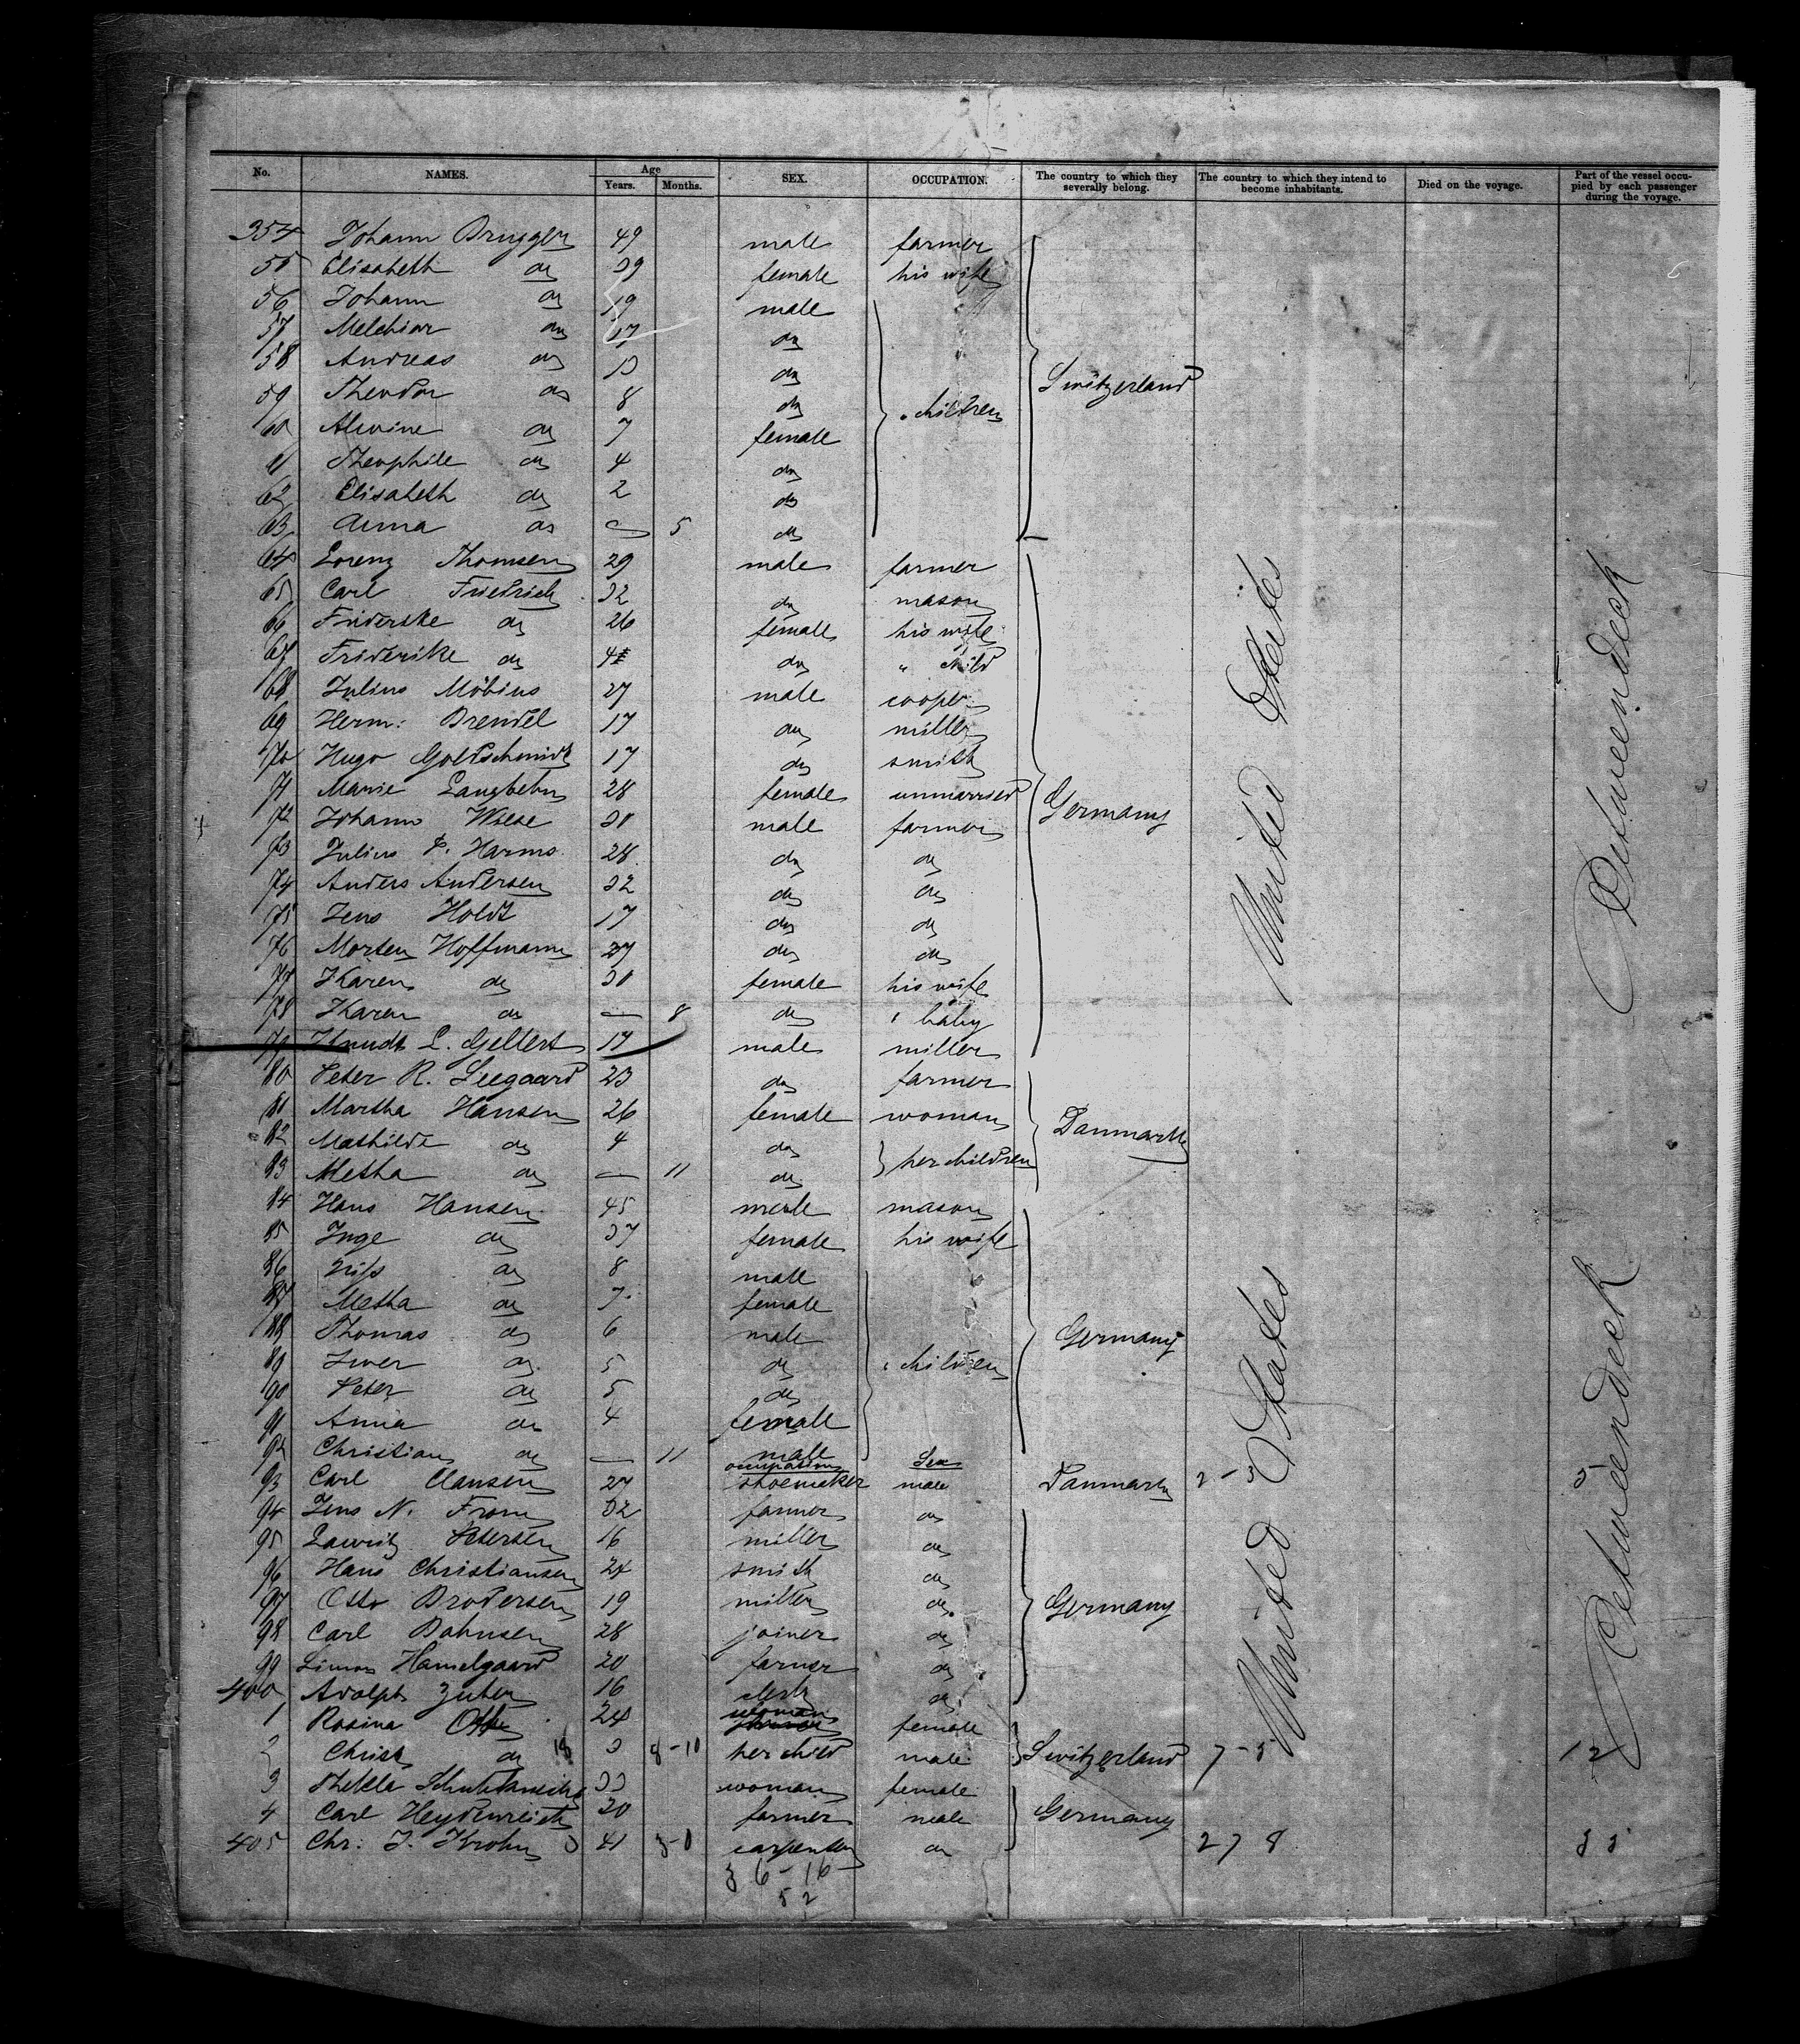 No. NAMES. Age Years. Months. SEX. OCCUPATION. The country to which they severally belong. The country to which they intend to become inhabitants. Died on the voyage. Part of the vessel occupied by each passenger during the voyage.
354 Johann Brugger 49 male farmer
55 Elisabeth do 39 female his wife
56 Johann do 19 male
57 Melchior do 17 do
58 Andreas do 13 do Switzerland
59 Theodor do 8 do " children
60 Alwine do 7 female
61 Theophile do 4 do
62 Elisabeth do 2 do
63 Anna do — 5 do
64 Lorenz Thomsen 29 male farmer
65 Carl Friedrich 32 do mason
66 Friderike do 26 female his wife
67 Friderike do 4 do " child
68 Julius Möbius 27 male cooper
69 Herm: Brendel 17 do miller
70 Hugo Goldschmidt 17 do smith
71 Marie Langbehn 28 female unmarried Germany United States Between deck
72 Johann Wiese 30 male farmer
73 Julius P. Harms 28 do do
74 Anders Andersen 32 do do
75 Jens Holdt 17 do do
76 Morten Hoffmann 27 do do
77 Karen do 30 female his wife
78 Karen do — 8 do " baby
79 Knudt L. Gellert 17 male miller
80 Peter R. Seegaard 23 do farmer
81 Martha Hansen 26 female woman Danmark
82 Mathilde do 4 do her children
83 Metha do — 11 do
84 Hans Hansen 45 male mason
85 Inge do 37 female his wife
86 Nis do 8 male
87 Metha do 7 female
88 Thomas do 6 male Germany
89 Iwer do 5 do " children
90 Peter do 5 do
91 Anna do 4 female
92 Christian do — 11 male
occupation Sex
93 Carl Clausen 27 shoemaker male Danmark 2-3 United States 5 Between deck
94 Jens N. From 32 farmer do
95 Lawritz Petersen 16 miller do
96 Hans Christiansen 24 smith do
97 Otto Brodersen 19 miller do Germany
98 Carl Bahnsen 28 joiner do
99 Simon Hamelgaard 20 farmer do
400 Adolph Zuber 16 clerk do
1 Rosina Otto 24 woman female
2 Christ do 18 3 8-10 her child male Switzerland 7-5 12
3 Thekla 33 woman female
4 Carl Heydenreich 20 farmer male Germany
405 Chr: J. Krohn 3 41 3-0 carpenter do 278 33
36-16
52